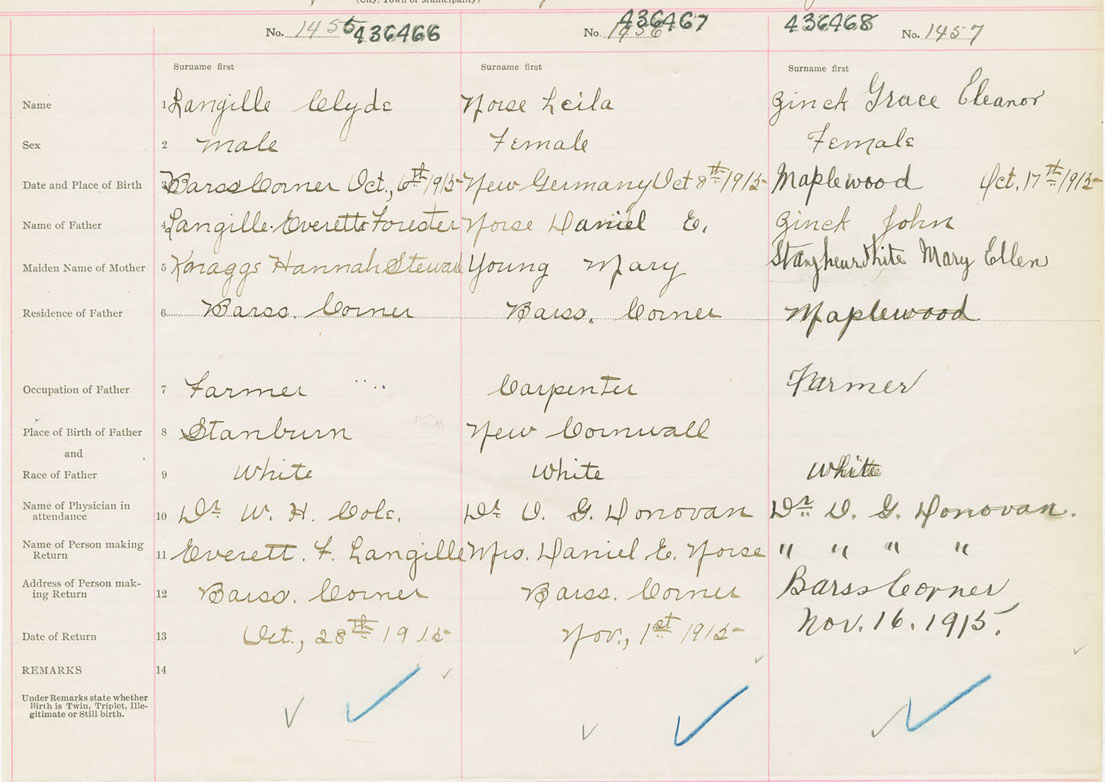 (City, Town or Municipality)
No. 1455 436466 No. 1456 436467 436468 No. 1457
Surname first Surname first Surname first
Name 1 Langille Clyde Norse Leila Zinck Grace Eleanor
Sex 2 Male Female Female
Date and Place of Birth 3 Barss Corner Oct., 6th 1915 New Germany Oct 8th 1915 Maplewood Oct. 17th 1915
Name of Father 4 Langille Everett Forester Norse Daniel E. Zinck John
Maiden Name of Mother 5 Knaggs Hannah Young Mary Mary Ellen
Residence of Father 6 Barss. Corner Barss. Corner Maplewood
Occupation of Father 7 Farmer Carpenter Farmer
Place of Birth of Father 8 Stanburn New Cornwall
and
Race of Father 9 White White White
Name of Physician in
attendance 10 Dr. W. H. Cole. Dr. O. G. Donovan Dr. O. G. Donovan.
Name of Person making
Return 11 Everett. F. Langille Mrs. Daniel E. Norse " " " "
Address of Person mak-
ing Return 12 Barss. Corner Barss. Corner Barss Corner
Date of Return 13 Oct., 28th 1915 Nov., 1st 1915 Nov. 16. 1915.
REMARKS 14
Under Remarks state whether
Birth is Twin, Triplet, Ille-
gitimate or Still birth.